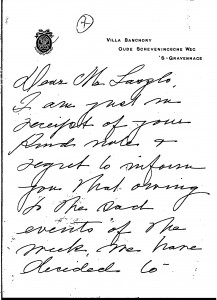 7
VILLA BANCHORY
OUDE SCHEVENINGSCHE WEG
'S-GRAVENHAGE
Dear Mr Laszlo,
I am just in
receipt of your
kind note &
regret to inform
you that owing
to the sad
events of the
week, we have
decided to